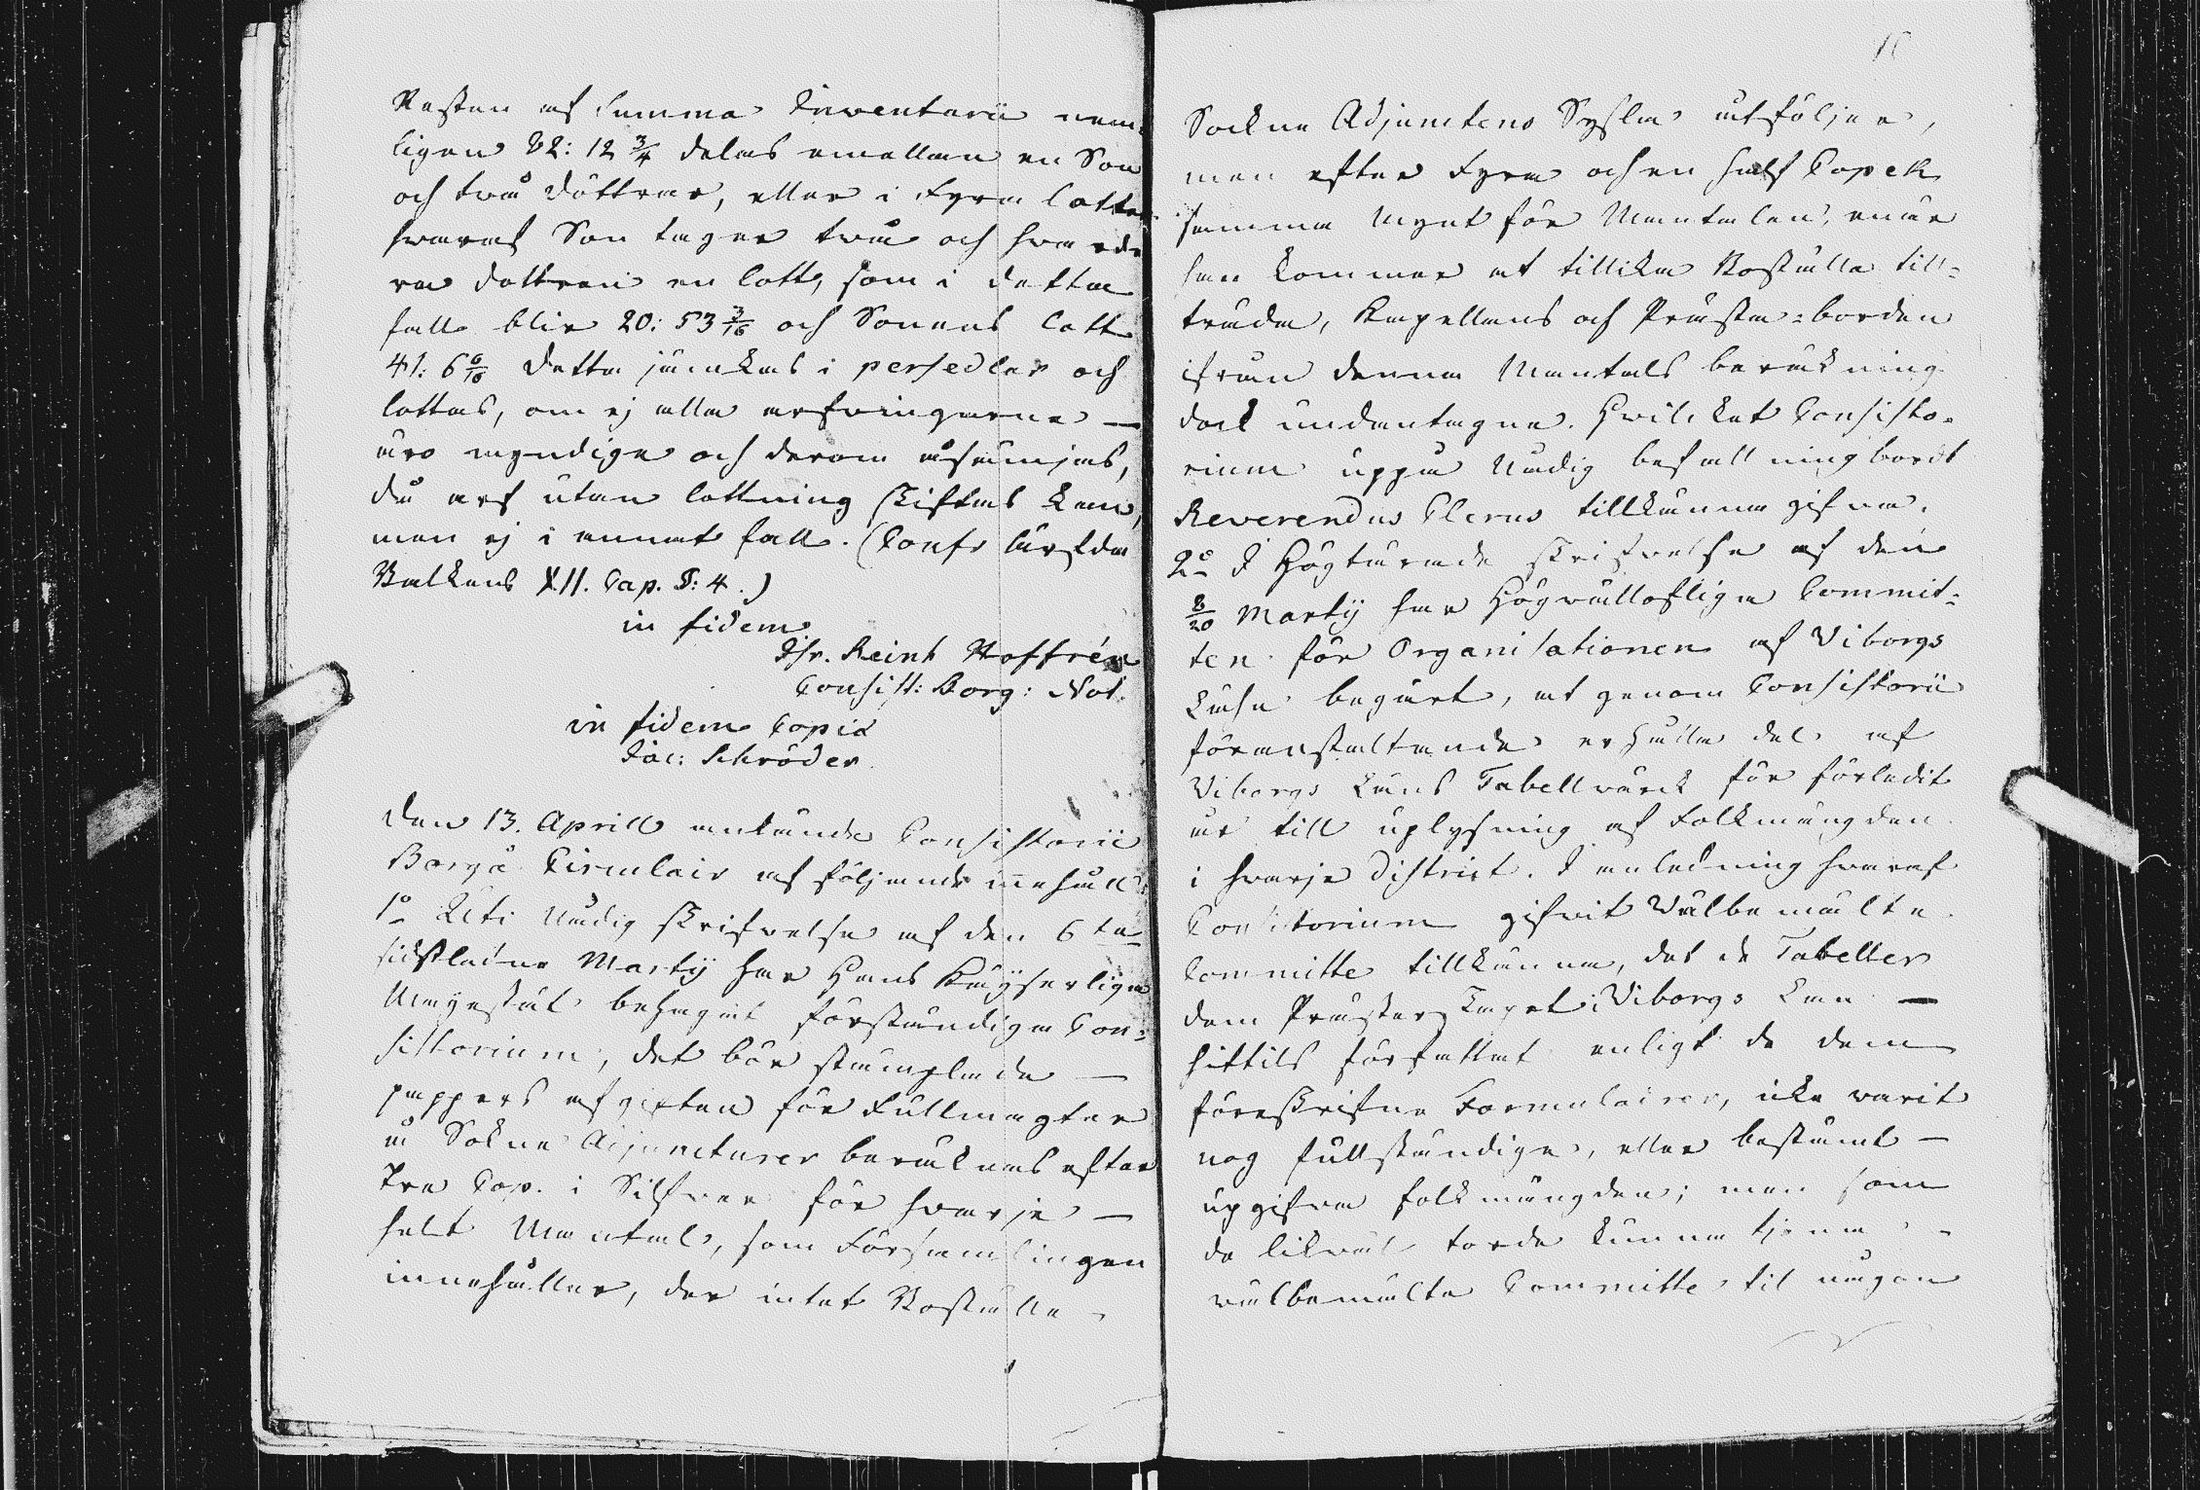 Resten af Summa Inventarii nem-
ligen 82: 12 3/4 delas emellan en Son
och två döttrar, eller i fyra lotter
hvaraf Son tager två och hvarde-
ra dottren en lott, som i detta
fall blir 20: 53 3/16 och Sonens lott
41: 6 6/16 detta jämkas i persedlar och
lottas, om ej alla arfvingarne —
äro myndige och derom åsämjas,
då arf utan lottning skiftas kan,
men ej i annat fall. (Confr Ärfda
Balkens XII. Cap. §: 4.)
in fidem
Joh. Reinh Hoffrén
Consist: Borg: Not.
in fidem Copiæ
Jac: Schröder.
Den 13. Aprill ankände Consistorii
Borgå Circulair af följande innehåll
1o Uti Nådig skrifvelse af den 6te
sidstledne Martij har Hans Kejserliga
Mayestät behagat förständiga Con-
sistorium, det bör stämplade —
pappers afgiften för Fullmagter
å Sokne Adjuncturer beräknas efter
Tre Cop. i Silfver för hvarje —
helt Mantal, som Församlingen
innehåller, der intet Boställe
16
Sockne Adjunctens Sysla åtföljer,
men efter Fyra och en half Copek
samma mynt för Mantalen, enär
han kommer at tillika Boställe till-
träda, Kapellans och Prästa-borden
ifrån denna Mantals beräkning
dock undantagne. Hvilcket Consisto-
rium uppå Nådig befallning bordt
Reverendus Clerus tillkänna gifva.
2o I Högtärade skrifvelse af den
8/20 Martij har Högvällofliga Commit-
ten för Organisationen af Viborgs
Län begärt, at genom Consistorii
föranstaltande erhålla del af
Viborgs Läns Tabellvärck för förledit
år till uplysning af Folkmängden
i hvarje District. I anledning hvaraf
Consistorium gifvit Välbemälte
Committe tillkänna, det de Tabeller
dem Prästerskapet i Viborgs Län —
hittils författat enligt de dem
föreskrifne Formulairer, icke varit
nog fullständige, eller bestämt —
upgifva folkmängden; men som
de likväl torde kunna tjena
välbemälte Committe til någon